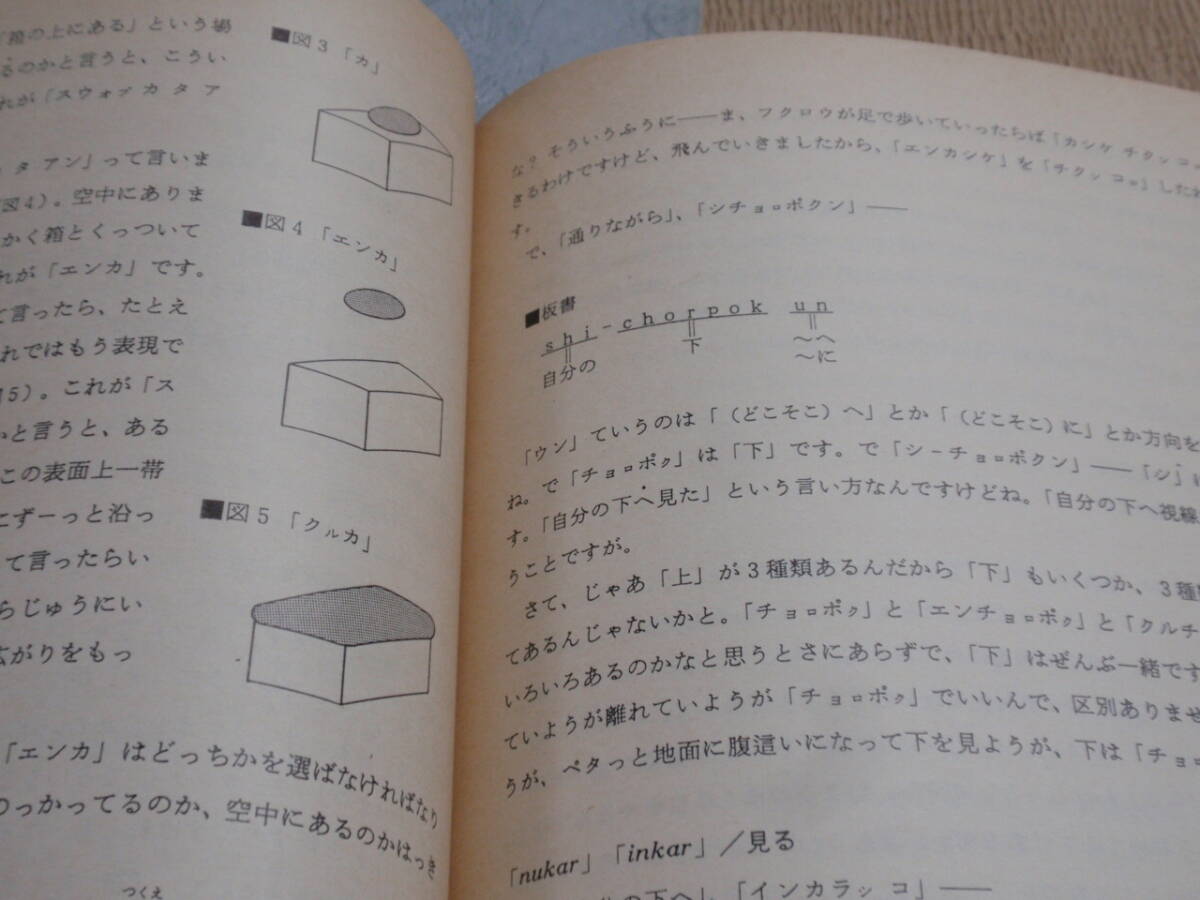 「箱の上にある」という場
るのかと言うと、こうい
れが「スウォㇷ゚ カ タ ア
タ アン」って言いま
図4）。空中にありま
かく箱とくっついて
れが「エンカ」です。
て言ったら、たとえ
れではもう表現で
5）。これが「ス
かと言うと、ある
この表面上一帯
こずーっと沿っ
て言ったらい
らじゅうにい
広がりをもっ
■図3「カ」
■図4「エンカ」
■図5「クㇽカ」
「エンカ」はどっちかを選ばなければなり
のっかってるのか、空中にあるのかはっき
つくえ
な？そういうふうに――ま、フクロウが足で歩いていったらば「カシケ チクシ コ
きるわけですけど、飛んでいきましたから、「エンカシケ」を「チクシ コㇿ」した
す。
で、「通りながら」、「シチョㇿポクン」――
■板書
shi-chorpok un
自分の 下 〜へ
〜に
「ウン」ていうのは「（どこそこ）へ」とか「（どこそこ）に」とか方向を
ね。で「チョㇿポㇰ」は「下」です。で「シ－チョㇿポクン」――「シ」に
す。「自分の下へ見た」という言い方なんですけどね。「自分の下へ視線
うことですが。
さて、じゃあ「上」が3種類あるんだから「下」もいくつか、3種
てあるんじゃないかと。「チョㇿポㇰ」と「エンチョㇿポㇰ」と「クㇽチ
いろいろあるのかなと思うとさにあらずで、「下」はぜんぶ一緒です
ていようが離れていようが「チョㇿポㇰ」でいいんで、区別ありませ
うが、ペタっと地面に腹這いになって下を見ようが、下は「チョㇿ
「nukar」「inkar」／見る
の下へ」、「インカラッ コ」――